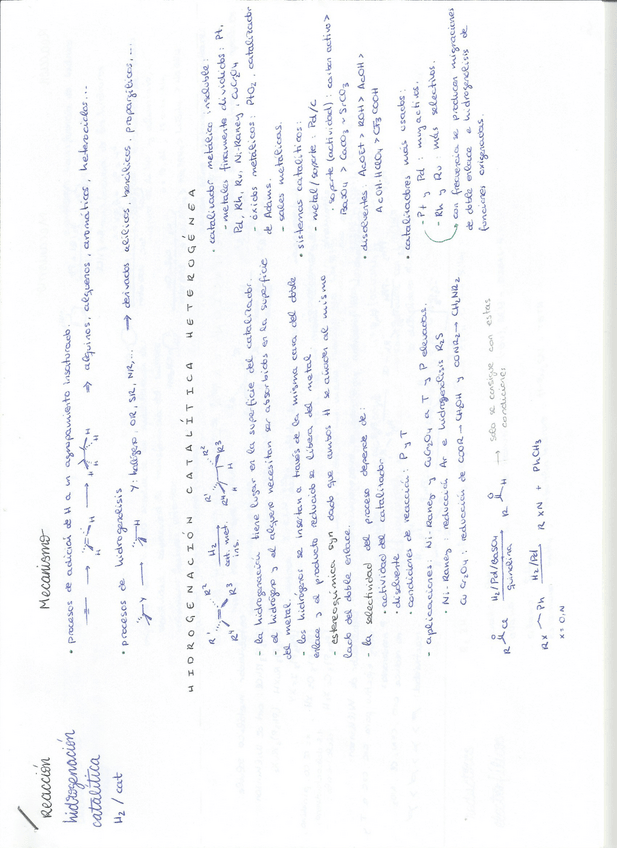 Reacción
Mecanismo
hidrogenación
catalítica
H2 / cat
• procesos de adición de H a un agrupamiento insaturado.
→ alquinos, alquenos, aromáticos, heterociclos...
• procesos de hidrogenólisis
Y: halógeno, OR, SR, NR, ... → derivados alílicos, bencílicos, propargílicos, ...
HIDROGENACIÓN CATALÍTICA HETEROGÉNEA
R1 R2 R4 R3 H2 cat. met. ins. R1 R2 R4 R3 H H
- la hidrogenación tiene lugar en la superficie del catalizador.
- el hidrógeno y el alqueno necesitan ser absorbidos en la superficie
del metal.
- los hidrógenos se insertan a través de la misma cara del doble
enlace y el producto reducido se libera del metal.
- estereoquímica syn dado que ambos H se añaden al mismo
lado del doble enlace.
- la selectividad del proceso depende de:
• actividad del catalizador
• disolvente
• condiciones de reacción: P y T
- aplicaciones: Ni-Raney y CuCr2O4 a T y P elevadas.
• Ni-Raney: reducción Ar e hidrogenólisis R2S
CuCr2O4: reducción de COOR → CH2OH y CONR2 → CH2NR2
R O Cl H2/Pd/BaSO4 quinolina R O H → solo se consigue con estas
condiciones
RX Ph H2/Pd RXH + PhCH3
X = O, N
• catalizador metálico insoluble:
- metales finamente divididos: Pt,
Pd, Rh, Ru, Ni-Raney, CuCr2O4
- óxidos metálicos: PtO2, catalizador
de Adams.
- sales metálicas.
• sistemas catalíticos:
- metal/soporte: Pd/C
• soporte (actividad): carbón activo >
BaSO4 > CaCO3 > SrCO3
• disolventes: AcOEt > ROH > AcOH >
AcOH·HClO4 > CF3COOH
• catalizadores más usados:
- Pt y Pd: muy activos.
- Rh y Ru: más selectivos.
con frecuencia se producen migraciones
de doble enlace e hidrogenólisis de
funciones oxigenadas.